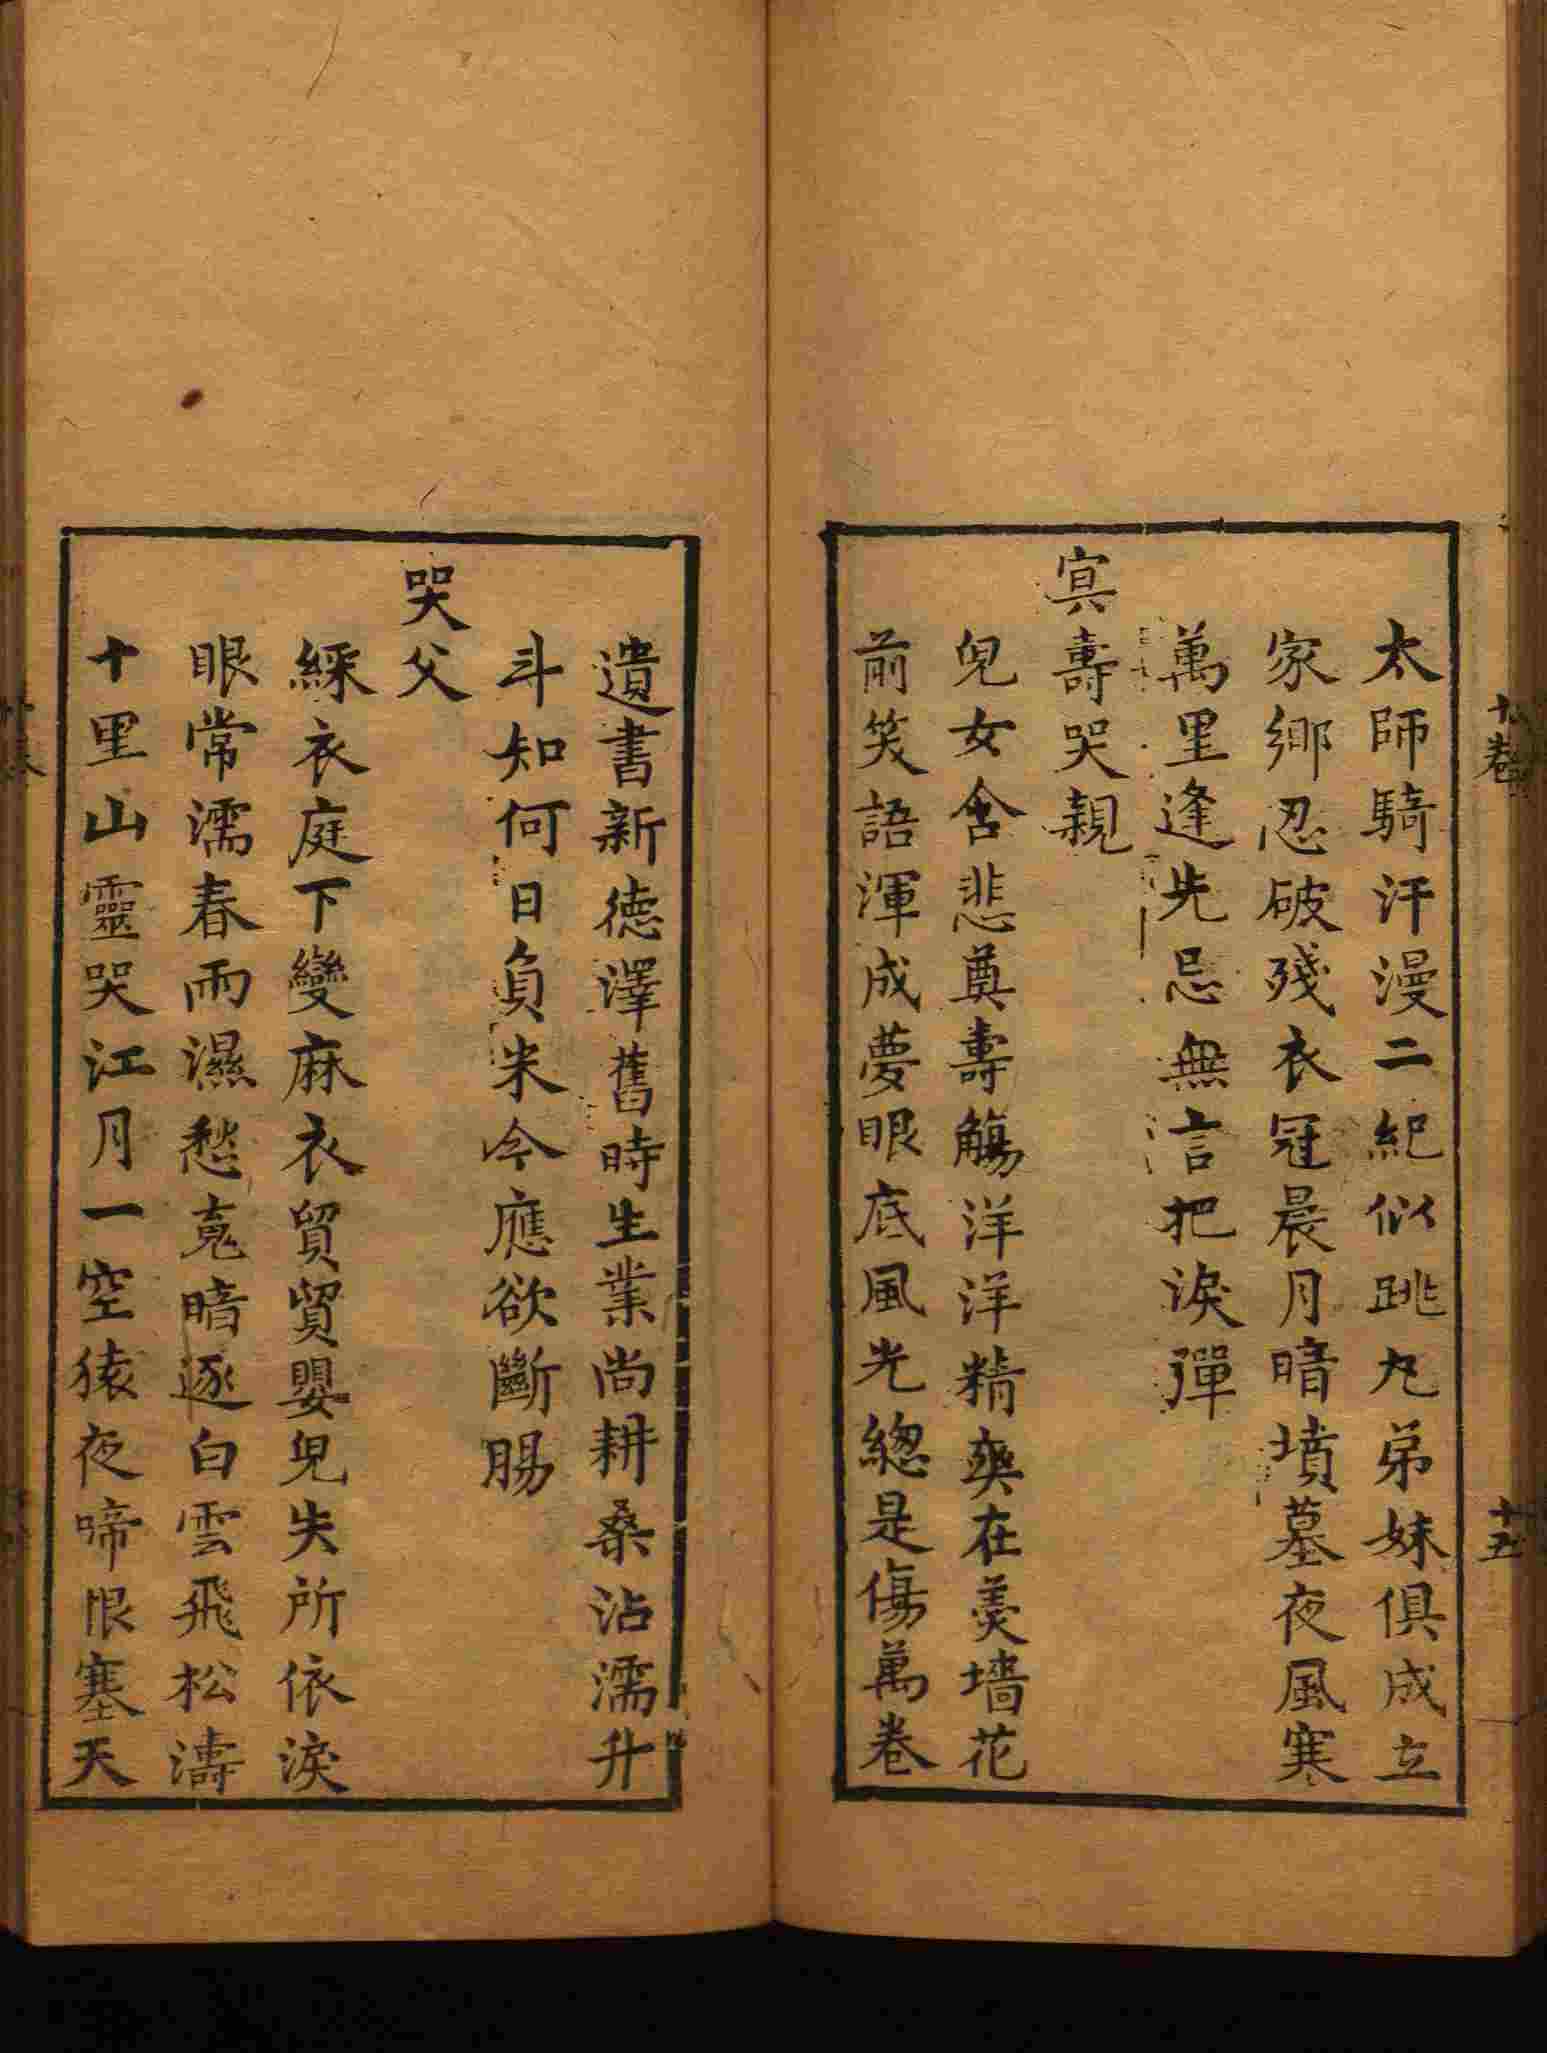 太師騎汗漫二紀似跳丸弟妹俱成立
家鄉忍破殘衣冠晨月暗墳墓夜風寒
萬里逢先忌無言把淚彈
㝠壽哭親
兒女含悲奠壽觴洋洋精爽在羹墻花
前笑語渾成夢眼底風光緫是傷萬卷
遺書新德澤舊時生業尚耕桑沾濡升
斗知何日負米今應欲斷腸
哭父
綵衣庭下變麻衣貿貿嬰兒失所依淚
眼常濡春雨濕愁䰟暗逐白雲飛松濤
十里山靈哭江月一空猿夜啼恨塞天
十五